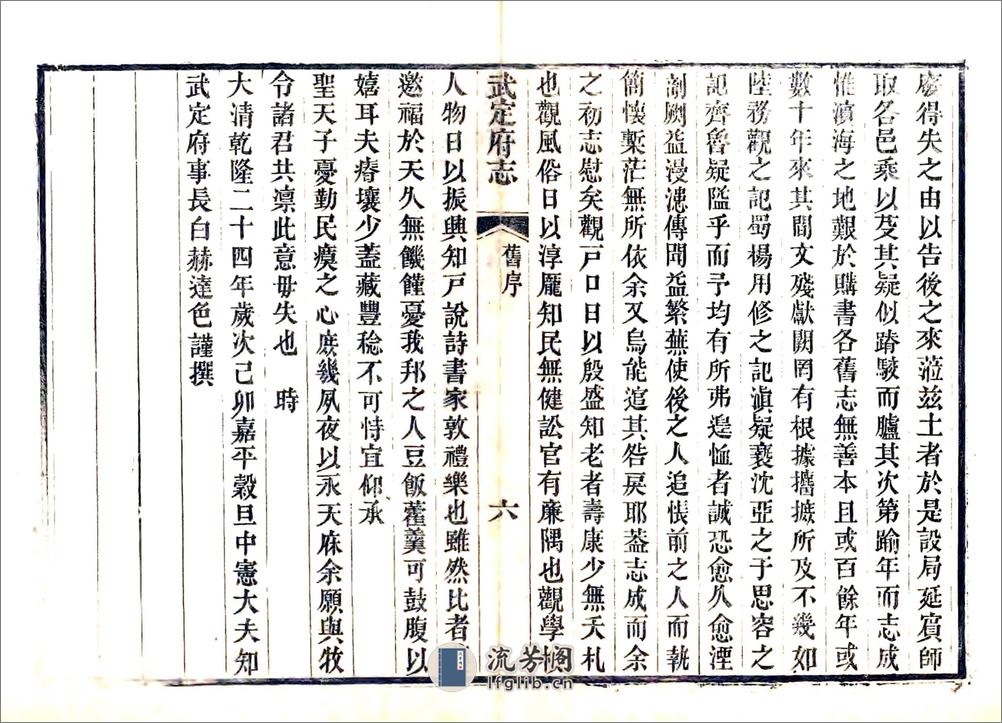 廢得失之由以告後之來蒞兹土者於是設局延賓師
取各邑乘以芟其疑似踳駁而臚其次第踰年而志成
惟濵海之地艱於購書各舊志無善本且或百餘年或
數十年來其間文殘獻闕罔有根據攟摭所及不幾如
陸務觀之記蜀楊用修之記滇疑襃沈亞之于思容之
記齊魯疑隘乎而予均有所弗遑恤者誠恐愈久愈湮
剞劂益漫漶傳聞益繁蕪使後之人追悵前之人而執
簡懷槧茫無所依余又烏能逭其咎戾耶葢志成而余
之初志慰矣觀戸口日以殷盛知老者壽康少無夭札
也觀風俗日以淳龎知民無健訟官有廉隅也觀學
武定府志
舊序
六
人物日以振興知戸說詩書家敦禮樂也雖然比者
邀福於天久無饑饉憂我邦之人豆飯藿羹可鼓腹以
嬉耳夫瘠壤少蓋藏豐稔不可恃宜仰承
聖天子憂勤民瘼之心庶幾夙夜以永天庥余願與牧
令諸君共凛此意毋失也 時
大清乾隆二十四年歲次己卯嘉平榖旦中憲大夫知
武定府事長白赫達色謹撰
流芳閣
lfglib.cn